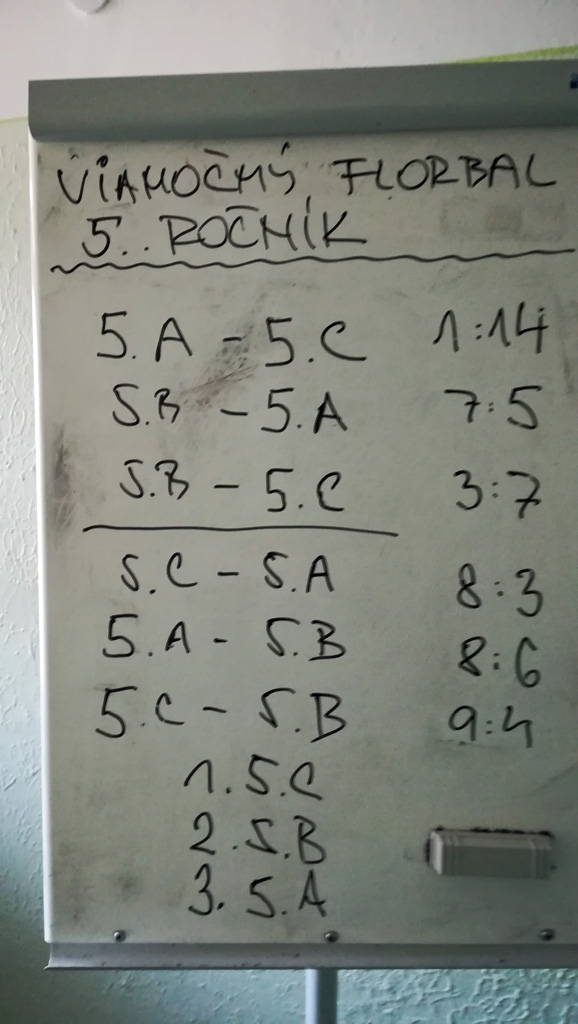 VIANOČNÝ FLORBAL
5. ROČNÍK
5.A - 5.C 1:14
5.B - 5.A 7:5
5.B - 5.C 3:7
5.C - 5.A 8:3
5.A - 5.B 8:6
5.C - 5.B 9:4
1. 5.C
2. 5.B
3. 5.A